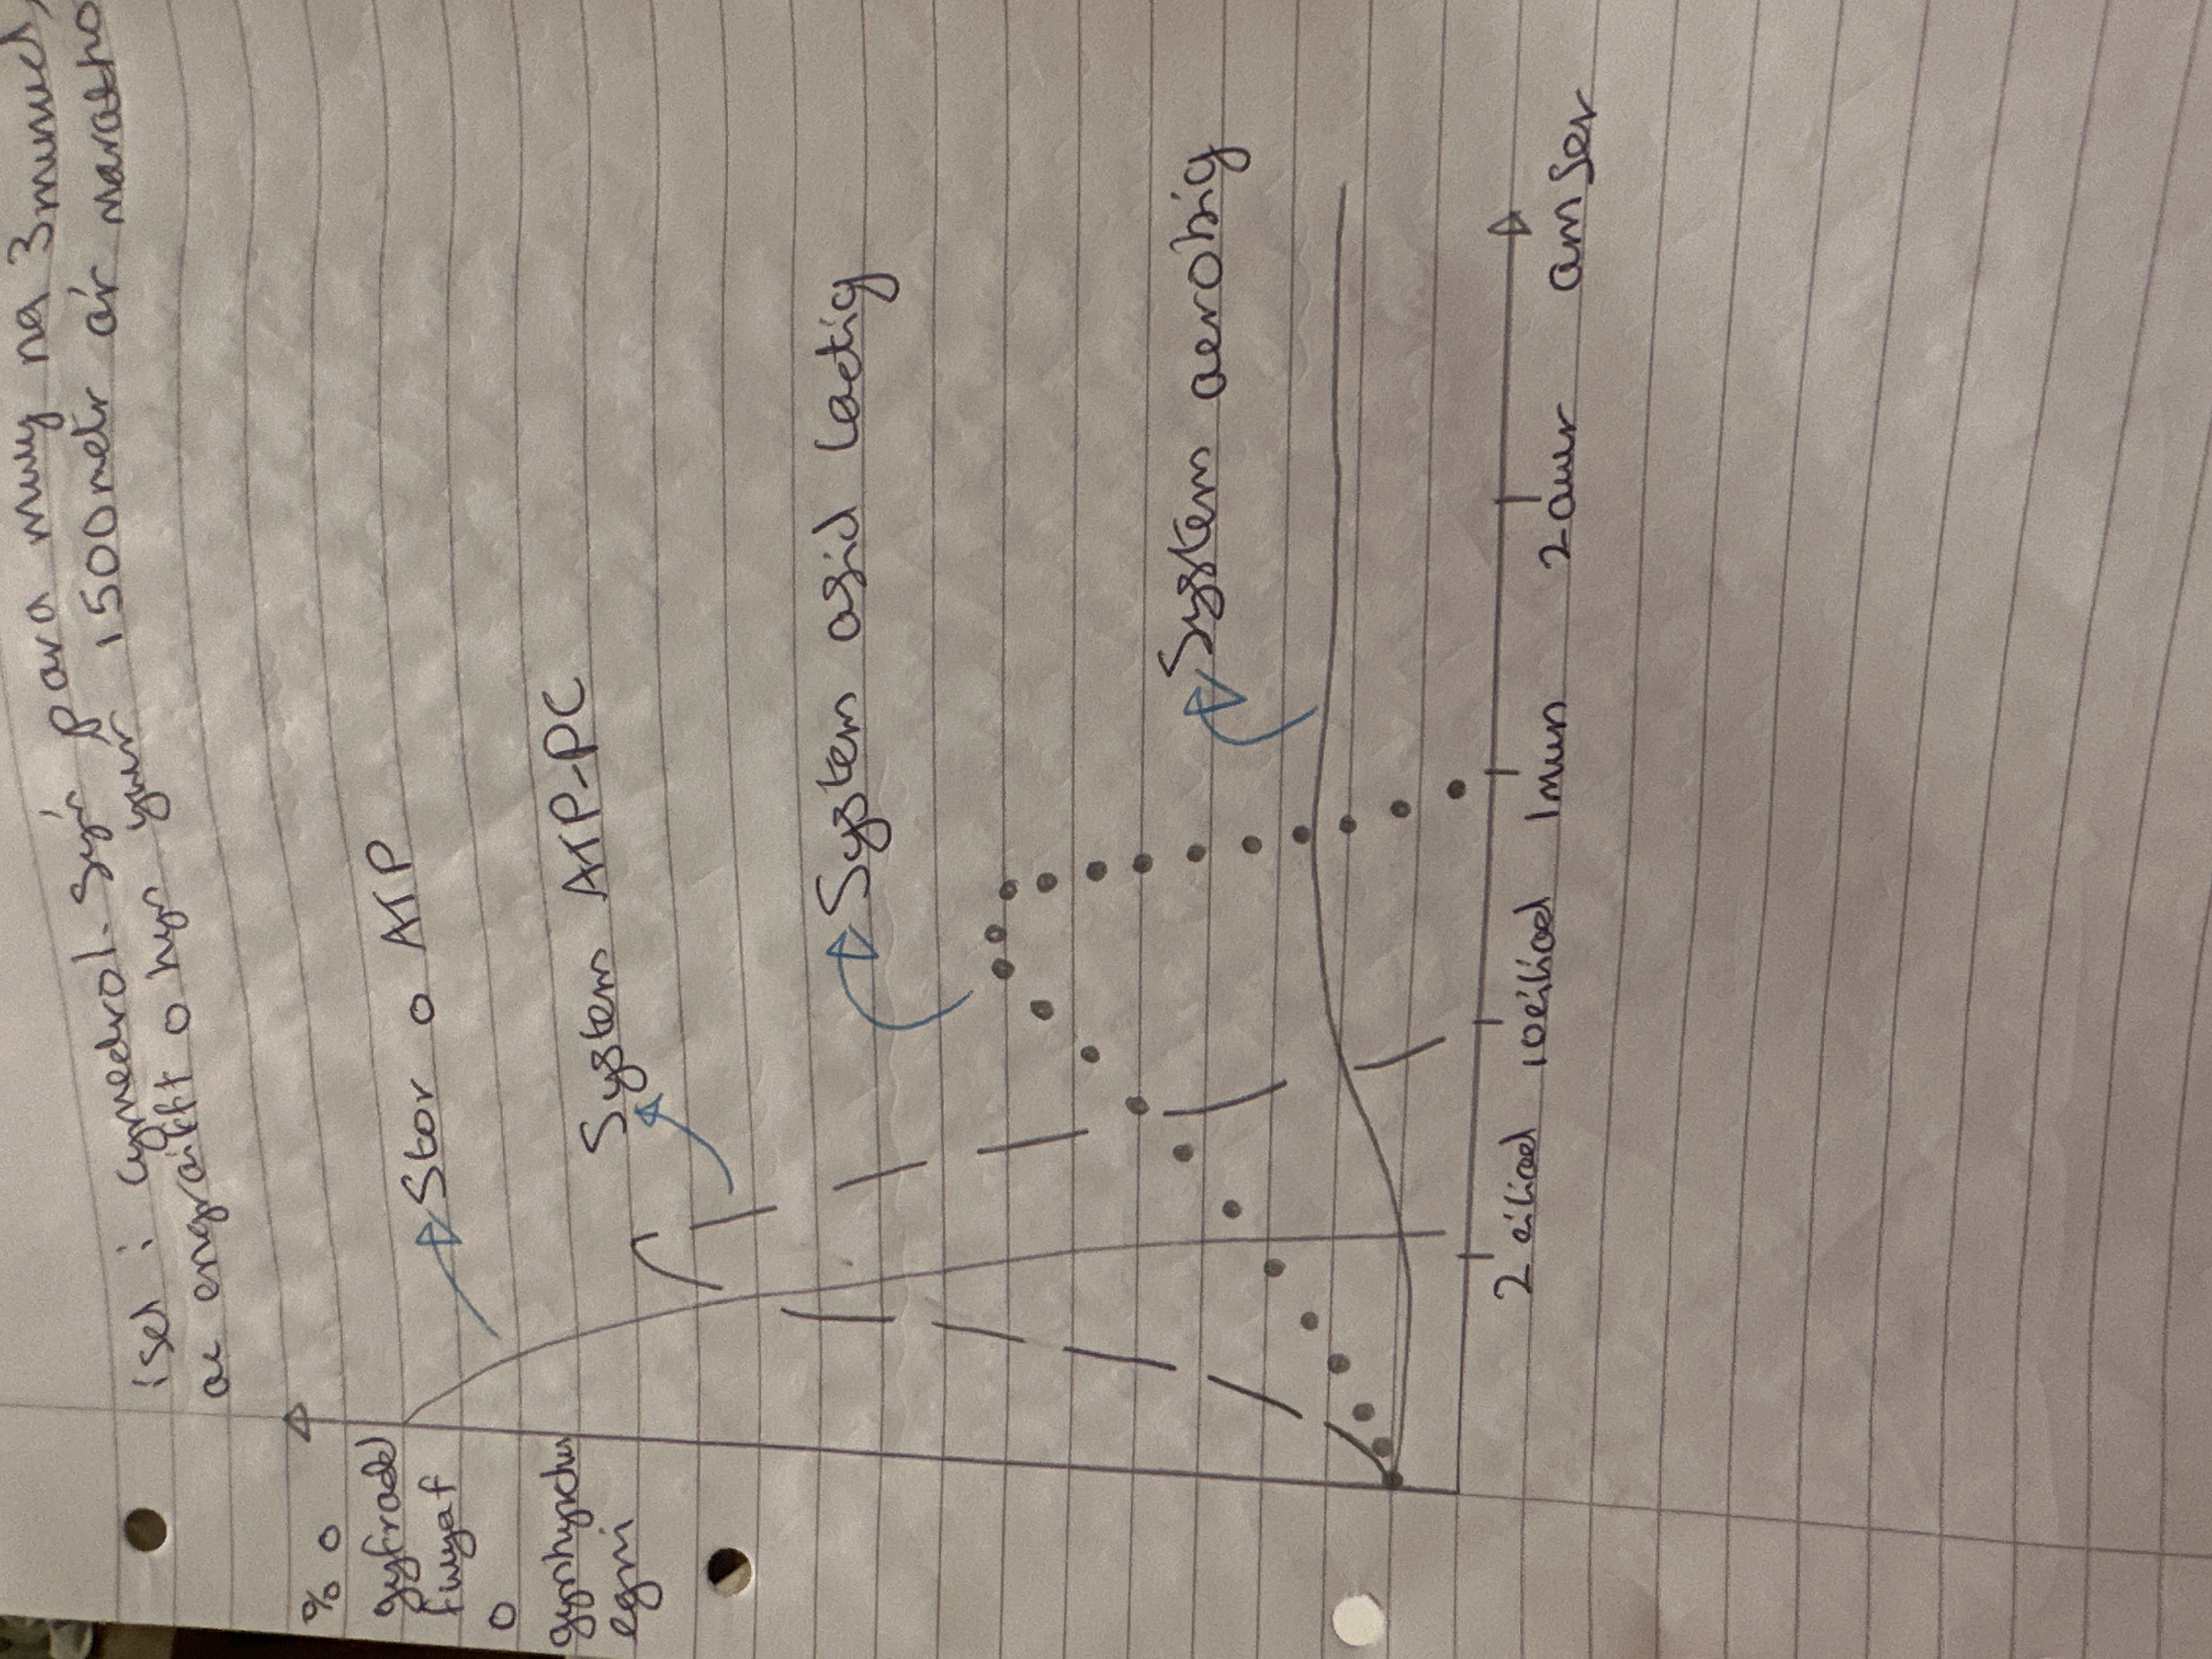 isel i cymedrol. Sy'n para mwy na 3munud,
ac engraifft o hyn yw'r 1500metr a'r maratho
% o
gyfradd
fwyaf
o
gynhyrchu
egni
Stor o ATP
System ATP-PC
System asid lactig
System aerobig
2 eiliad 10eiliad 1mun 2awr amser